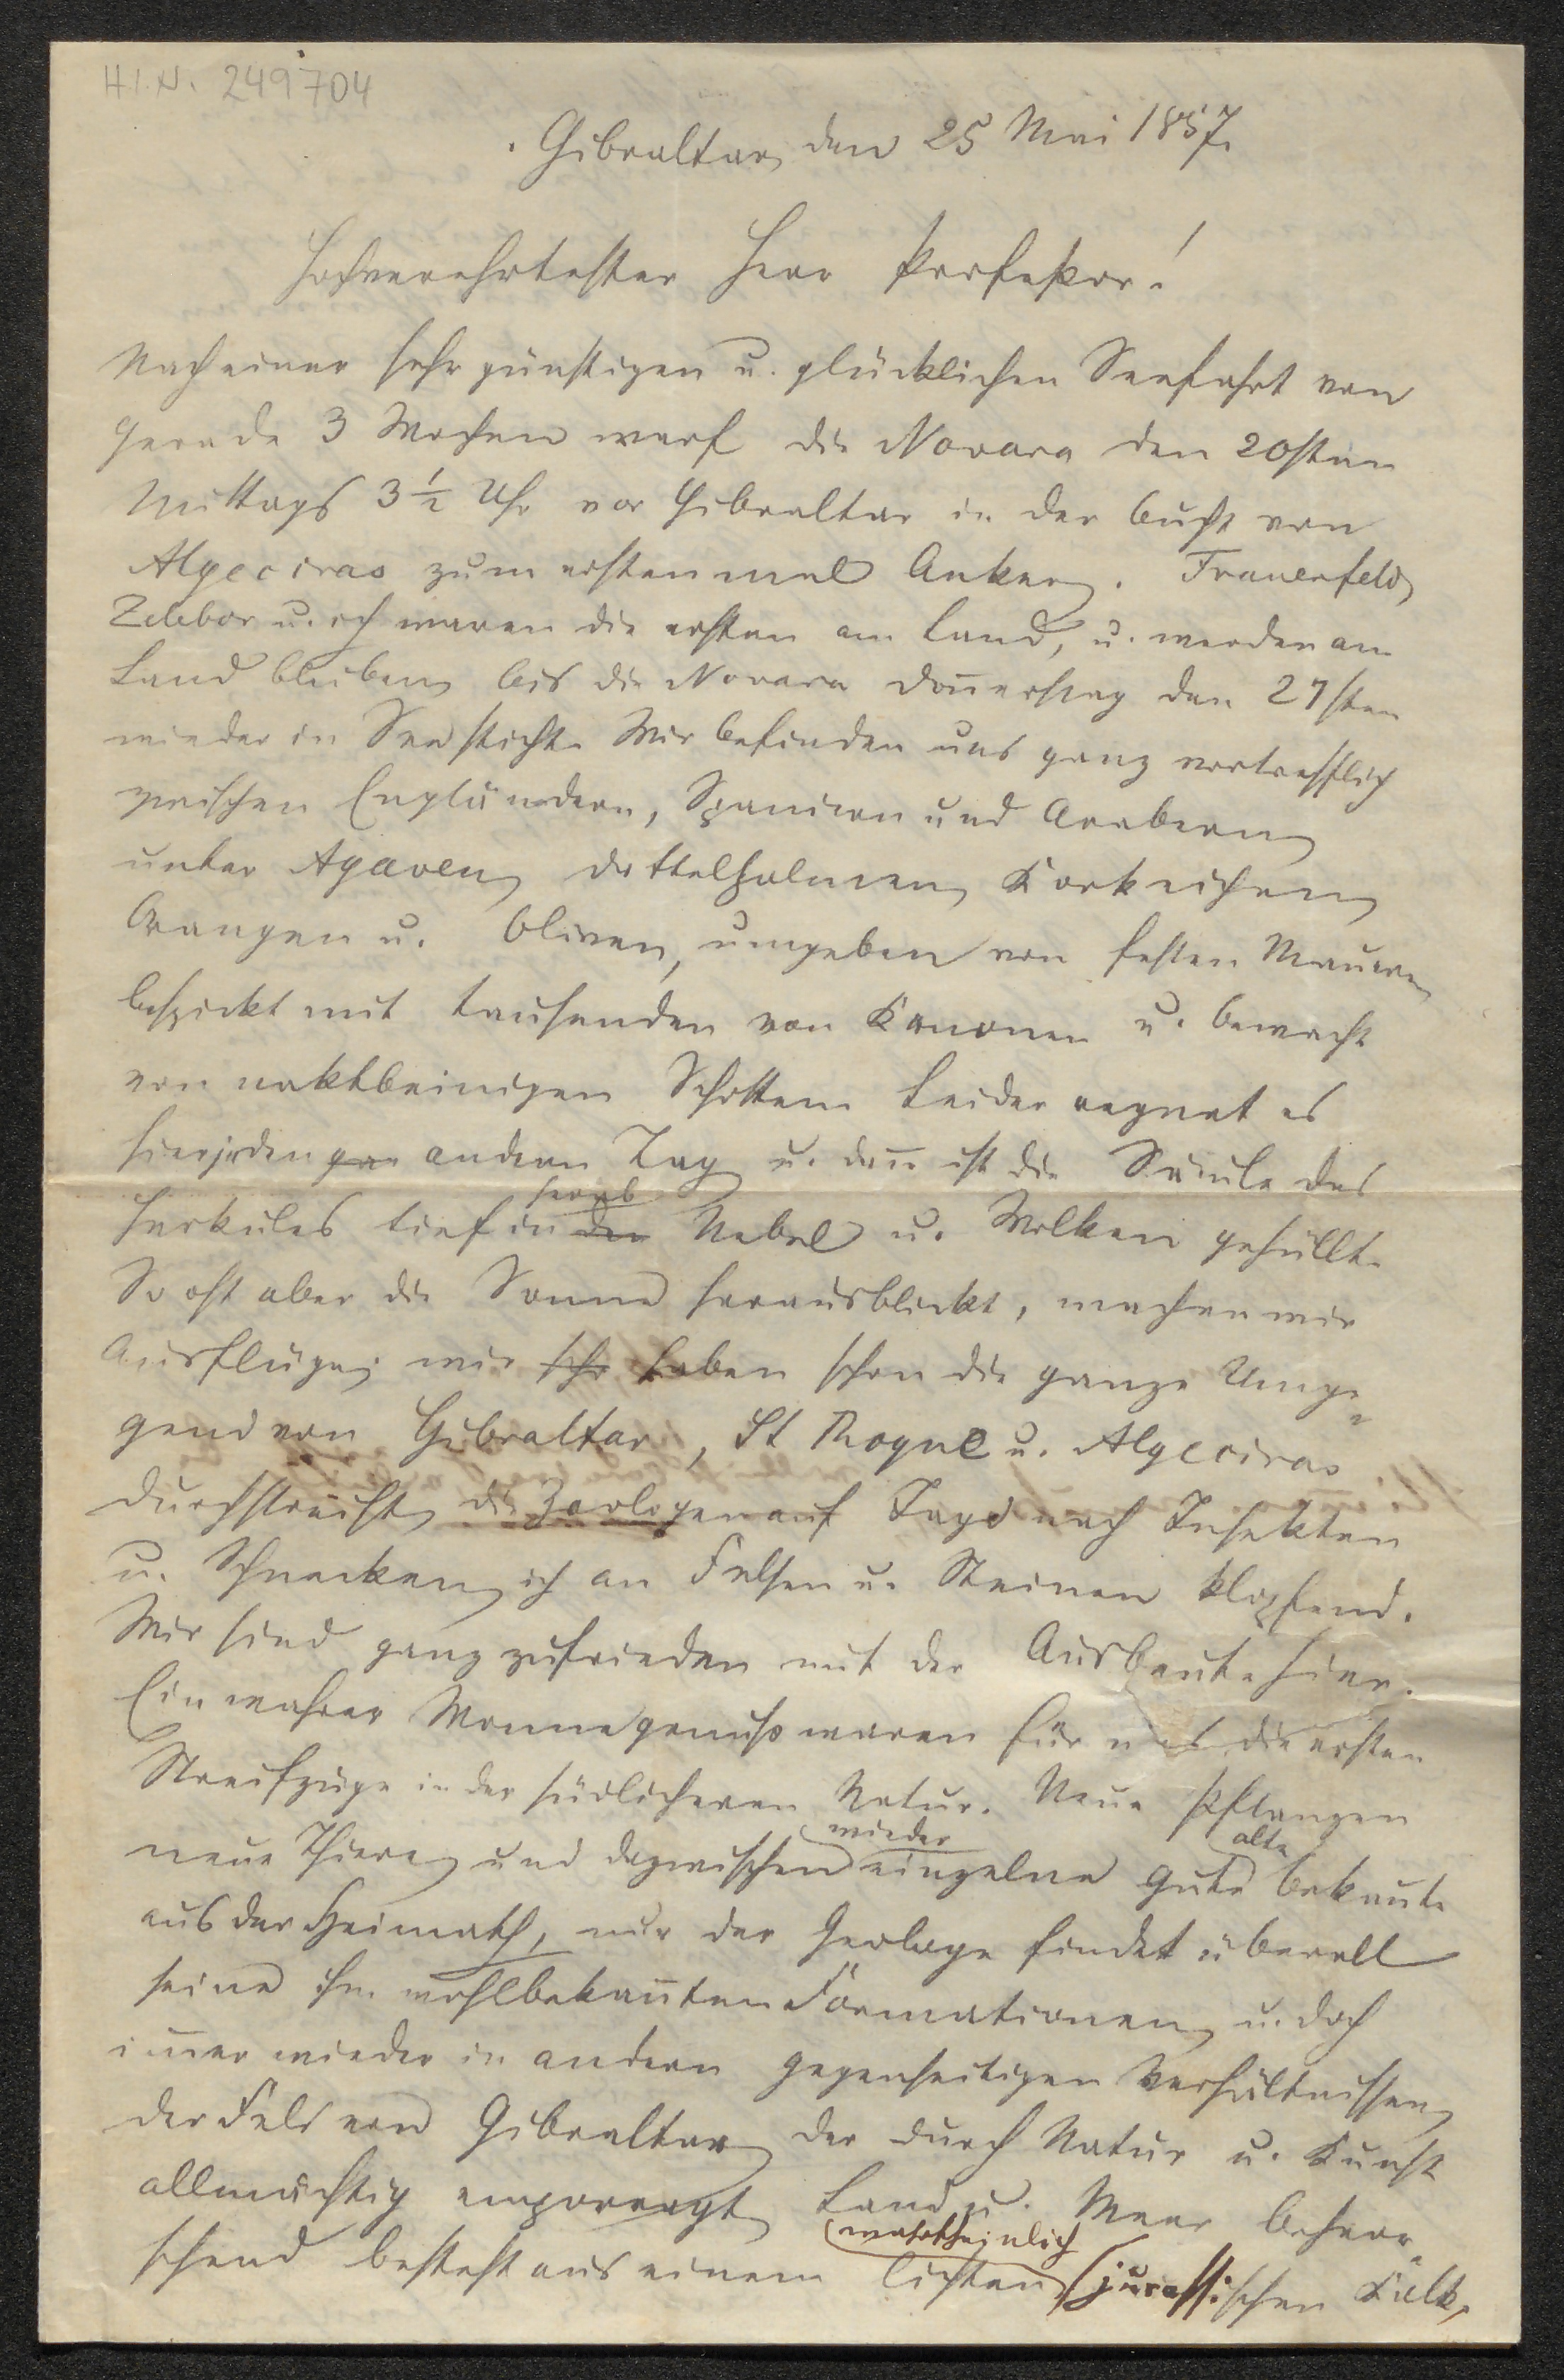 H.I.N. 249704
Gibraltar, den 25 Mai 1857.
Hochverehrtester Herr Professor!
Nach einer sehr günstigen u. glücklichen Seefahrt von
gerade 3 Wochen warf die Novara den 20sten
Mittags 3½ Uhr vor Gibraltar in der Bucht von
Algeciras zum erstenmal Anker. Frauenfeld,
Zelebor u. ich waren die ersten am Land, u. werden am
Land bleiben, bis die Novara Don̄erstag den 27sten
wieder in See sticht. Wir befinden uns ganz vortrefflich
zwischen Engländern, Spaniern und Arabern,
unter Agaven, Dattelpalmen, Korkeichen,
Orangen u. Oliven, umgeben von festen Mauern,
bespickt mit tausenden von Kanonen u. bewacht
von naktbeinigen Schotten. Leider regnet es
hier jeden andern Tag, u. dan̄ ist die Säule des
Herkules tief herab in den Nebel u. Wolken gehüllt.
So oft aber die Sonne herausblickt, machen wir
Ausflüge; wir haben schon die ganze Umge=
gend von Gibraltar, St Roque u. Algeciras
durchstreift, die Zoologen auf Jagd nach Insekten
u. Schnecken, ich an Felsen u. Steinen klopfend.
Wir sind ganz zufrieden mit der Ausbeute hier.
Ein wahrer Wonnegenuß waren für uns die ersten
Streifzüge in der südlicheren Natur. Neue Pflanzen
neue Thiere, und dazwischen wieder einzelne gute alte bekan̄te
aus der Heimath, nur der Geologe findet überall
seine ihm wohlbekan̄ten Formationen, u. doch
im̄er wieder in andern gegenseitigen Verhältnissen,
der Fels von Gibraltar, der durch Natur u. Kunst
allmächtig emporragt, Land u. Meer beherr=
schend besteht aus einem lichten, wahrscheinlich jurassischen Kalk,